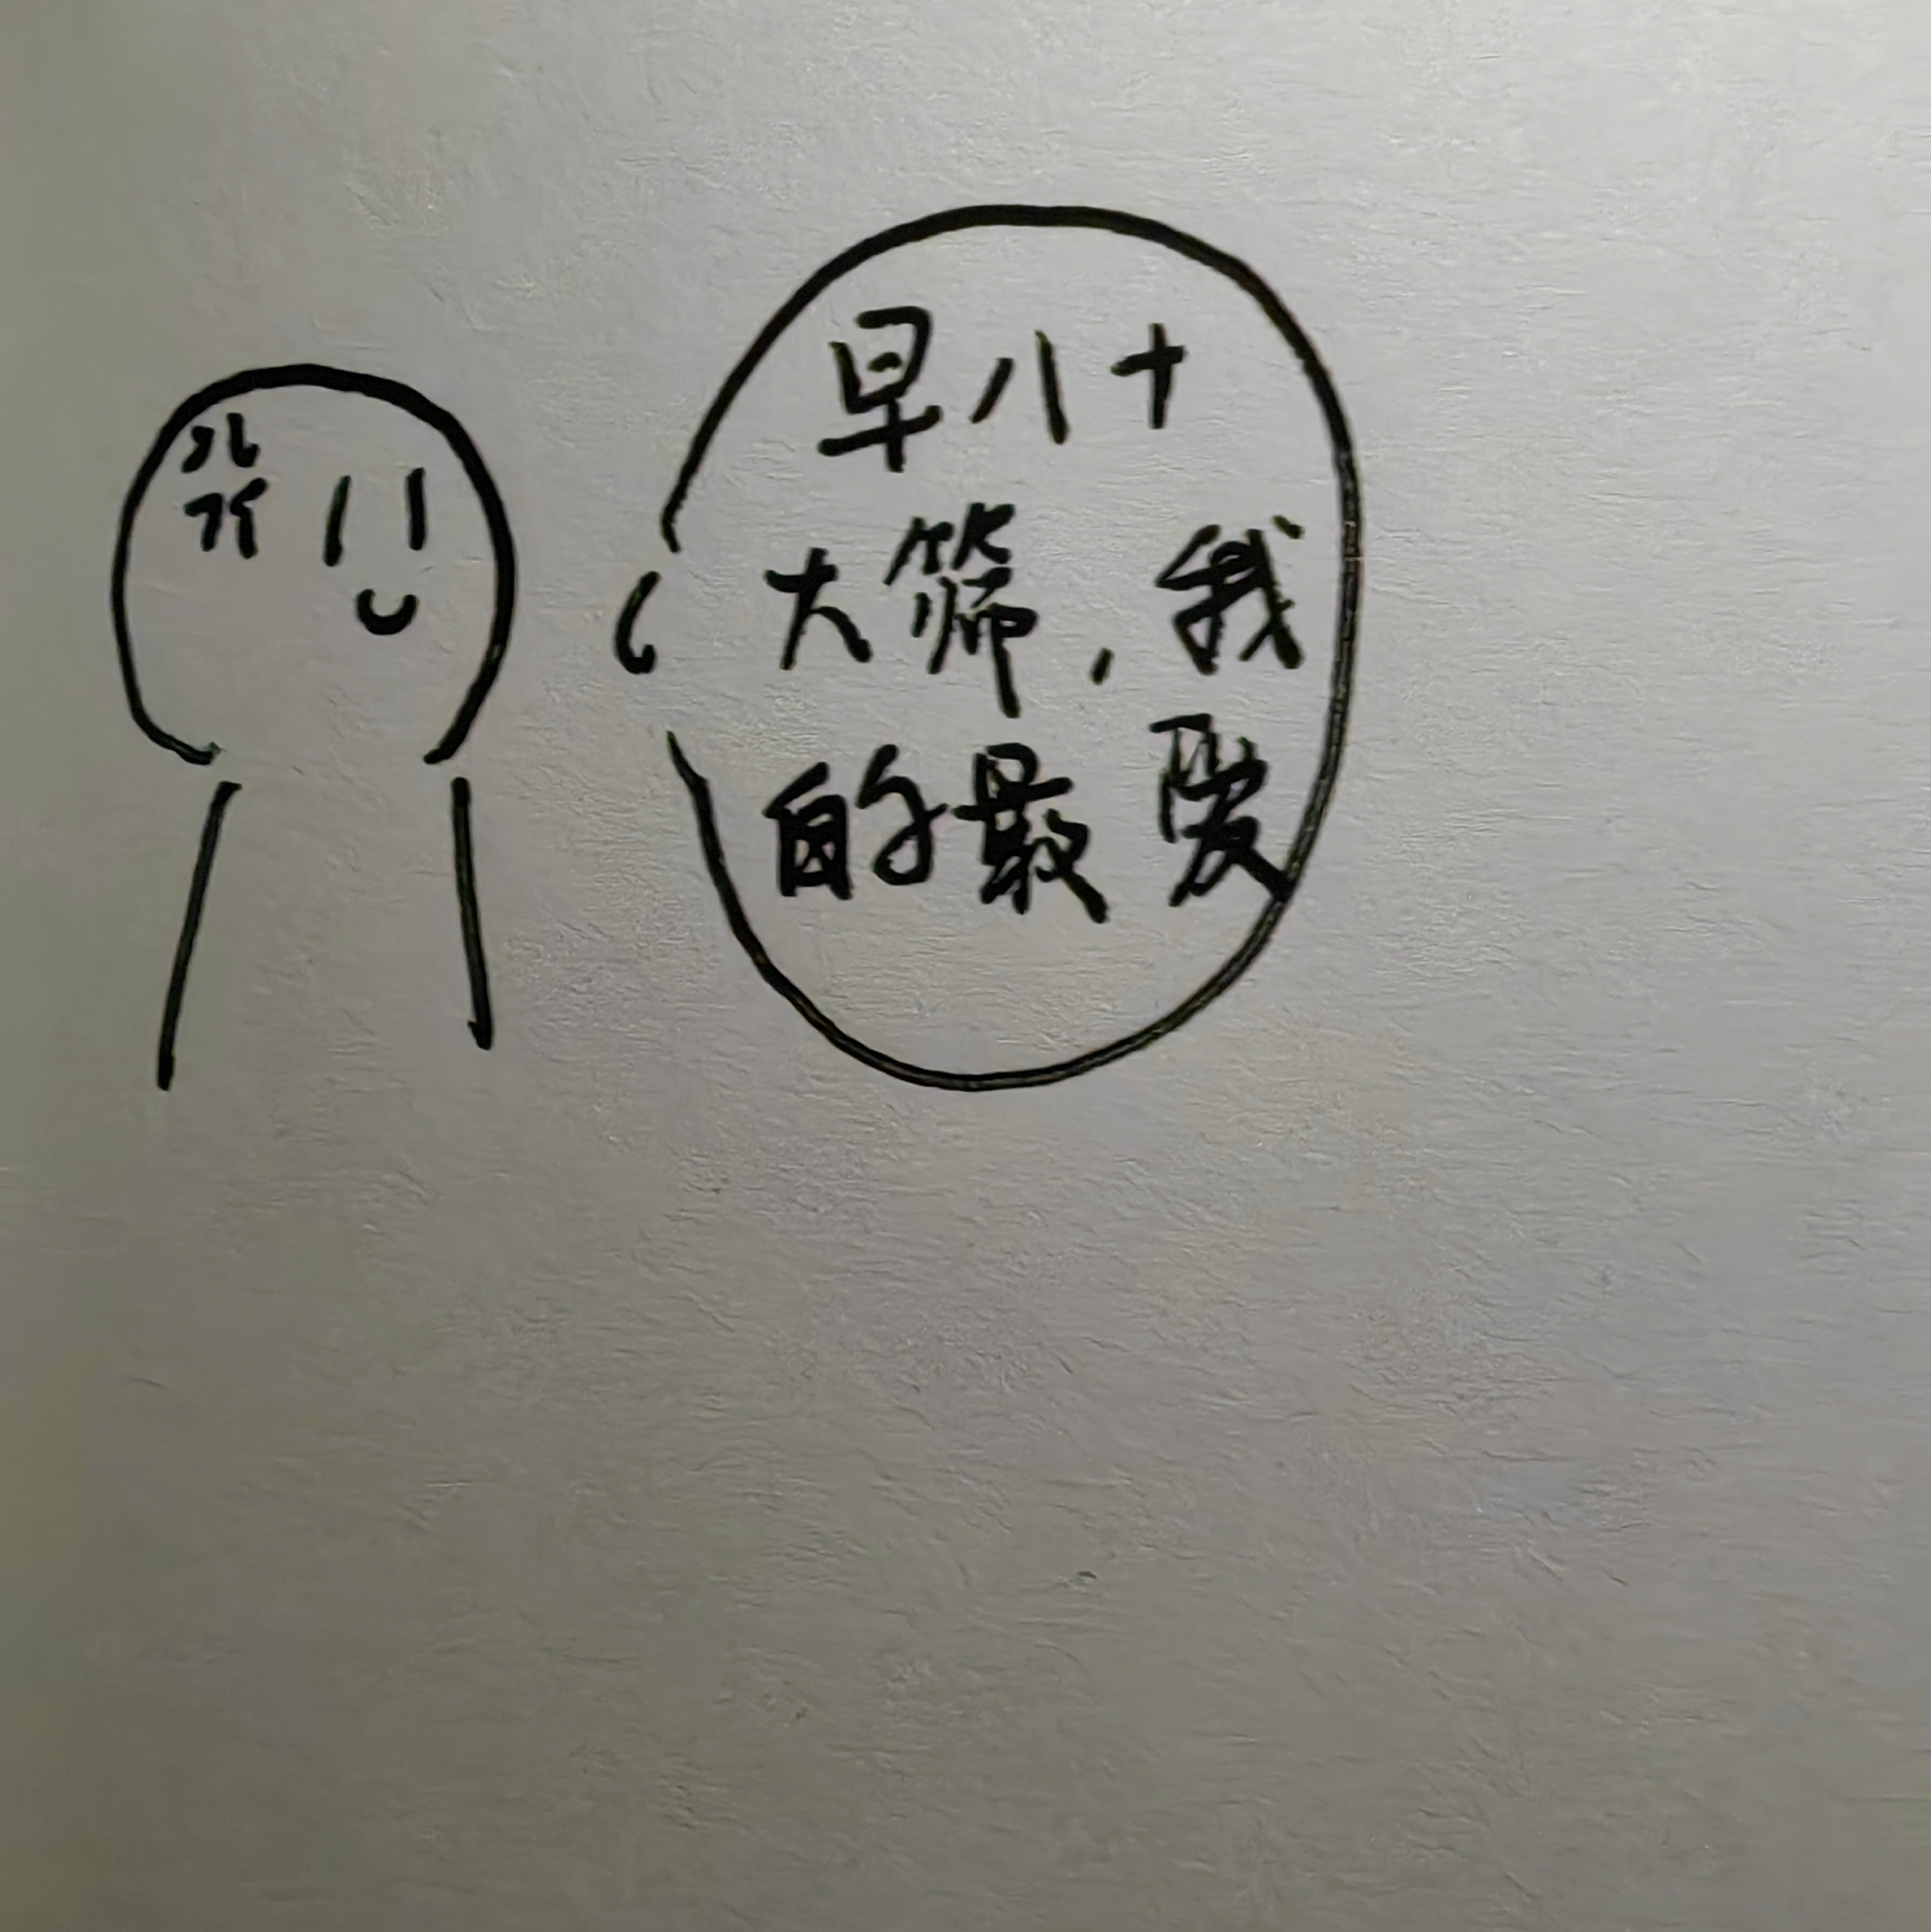 早八十
大筛，我
的最爱